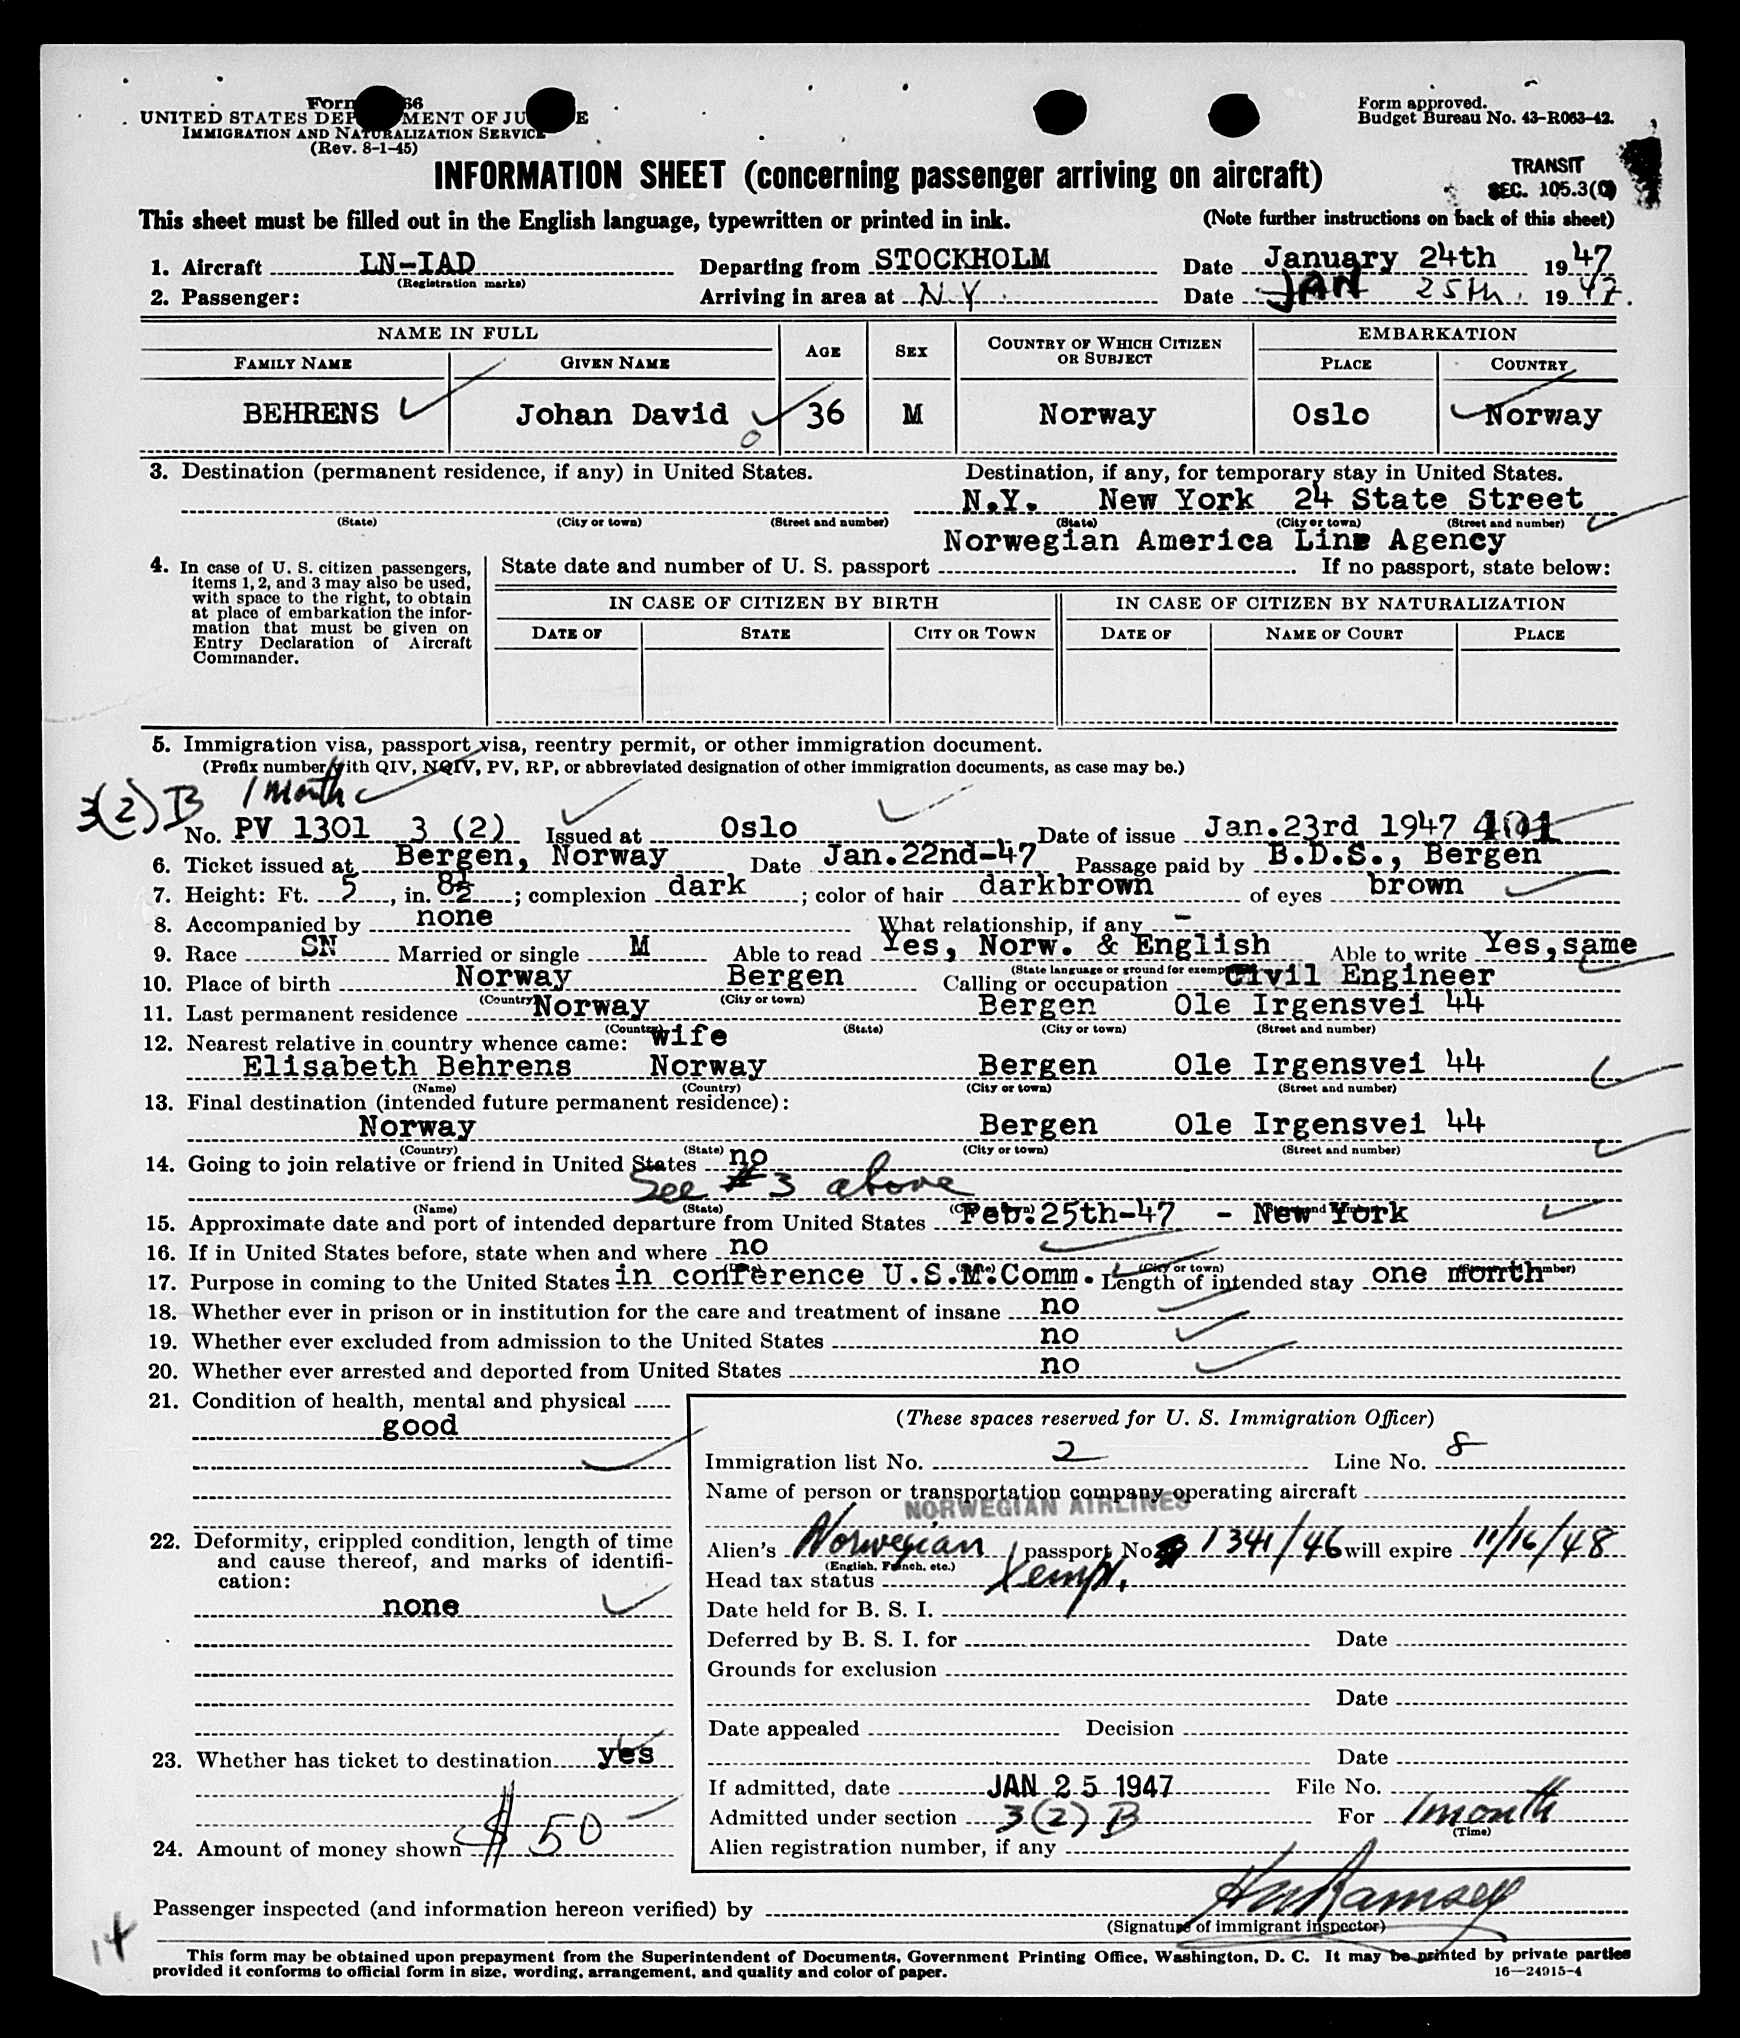 Form 66
UNITED STATES DEP MENT OF JU E
IMMIGRATION AND NATURALIZATION SERVICE
(Rev. 8-1-45)
Form approved.
Budget Bureau No. 43-R063-42.
INFORMATION SHEET (concerning passenger arriving on aircraft)
TRANSIT
SEC. 105.3(C)
This sheet must be filled out in the English language, typewritten or printed in ink.
(Note further instructions on back of this sheet)
1. Aircraft LN-IAD Departing from STOCKHOLM Date January 24th 1947
(Registration marks)
2. Passenger: Arriving in area at N.Y. Date JAN 25th. 1947.
NAME IN FULL AGE SEX COUNTRY OF WHICH CITIZEN OR SUBJECT EMBARKATION
FAMILY NAME GIVEN NAME PLACE COUNTRY
BEHRENS Johan David 36 M Norway Oslo Norway
3. Destination (permanent residence, if any) in United States. Destination, if any, for temporary stay in United States.
N.Y. New York 24 State Street
(State) (City or town) (Street and number) (State) (City or town) (Street and number)
Norwegian America Line Agency
4. In case of U. S. citizen passengers, items 1, 2, and 3 may also be used, with space to the right, to obtain at place of embarkation the information that must be given on Entry Declaration of Aircraft Commander.
State date and number of U. S. passport If no passport, state below:
IN CASE OF CITIZEN BY BIRTH IN CASE OF CITIZEN BY NATURALIZATION
DATE OF STATE CITY OR TOWN DATE OF NAME OF COURT PLACE
5. Immigration visa, passport visa, reentry permit, or other immigration document.
(Prefix number with QIV, NQIV, PV, RP, or abbreviated designation of other immigration documents, as case may be.)
3(2)B 1 month
No. PV 1301 3 (2) Issued at Oslo Date of issue Jan.23rd 1947 401
6. Ticket issued at Bergen, Norway Date Jan.22nd-47 Passage paid by B.D.S., Bergen
7. Height: Ft. 5, in. 8½; complexion dark; color of hair darkbrown of eyes brown
8. Accompanied by none What relationship, if any -
9. Race SN Married or single M Able to read Yes, Norw. & English Able to write Yes,same
(State language or ground for exemp
10. Place of birth Norway Bergen Calling or occupation Civil Engineer
(Country) (City or town)
11. Last permanent residence Norway Bergen Ole Irgensvei 44
(Country) (State) (City or town) (Street and number)
12. Nearest relative in country whence came: wife
Elisabeth Behrens Norway Bergen Ole Irgensvei 44
(Name) (Country) (City or town) (Street and number)
13. Final destination (intended future permanent residence):
Norway Bergen Ole Irgensvei 44
(Country) (State) (City or town) (Street and number)
14. Going to join relative or friend in United States no
See # 3 above
(Name) (State)
15. Approximate date and port of intended departure from United States Feb.25th-47 - New York
16. If in United States before, state when and where no
17. Purpose in coming to the United States in conference U.S.M.Comm. Length of intended stay one month
18. Whether ever in prison or in institution for the care and treatment of insane no
19. Whether ever excluded from admission to the United States no
20. Whether ever arrested and deported from United States no
21. Condition of health, mental and physical
good
22. Deformity, crippled condition, length of time and cause thereof, and marks of identification:
none
23. Whether has ticket to destination yes
24. Amount of money shown $ 50
(These spaces reserved for U. S. Immigration Officer)
Immigration list No. 2 Line No. 8
Name of person or transportation company operating aircraft
NORWEGIAN AIRLINES
Alien's Norwegian passport No. 1341/46 will expire 11/16/48
(English, French, etc.)
Head tax status Xempt.
Date held for B. S. I.
Deferred by B. S. I. for Date
Grounds for exclusion
Date
Date appealed Decision
Date
If admitted, date JAN 25 1947 File No.
Admitted under section 3(2)B For 1 month
(Time)
Alien registration number, if any
Passenger inspected (and information hereon verified) by HW Ramsey
(Signature of immigrant inspector)
14
This form may be obtained upon prepayment from the Superintendent of Documents, Government Printing Office, Washington, D. C. It may be printed by private parties
provided it conforms to official form in size, wording, arrangement, and quality and color of paper.
16—24915-4